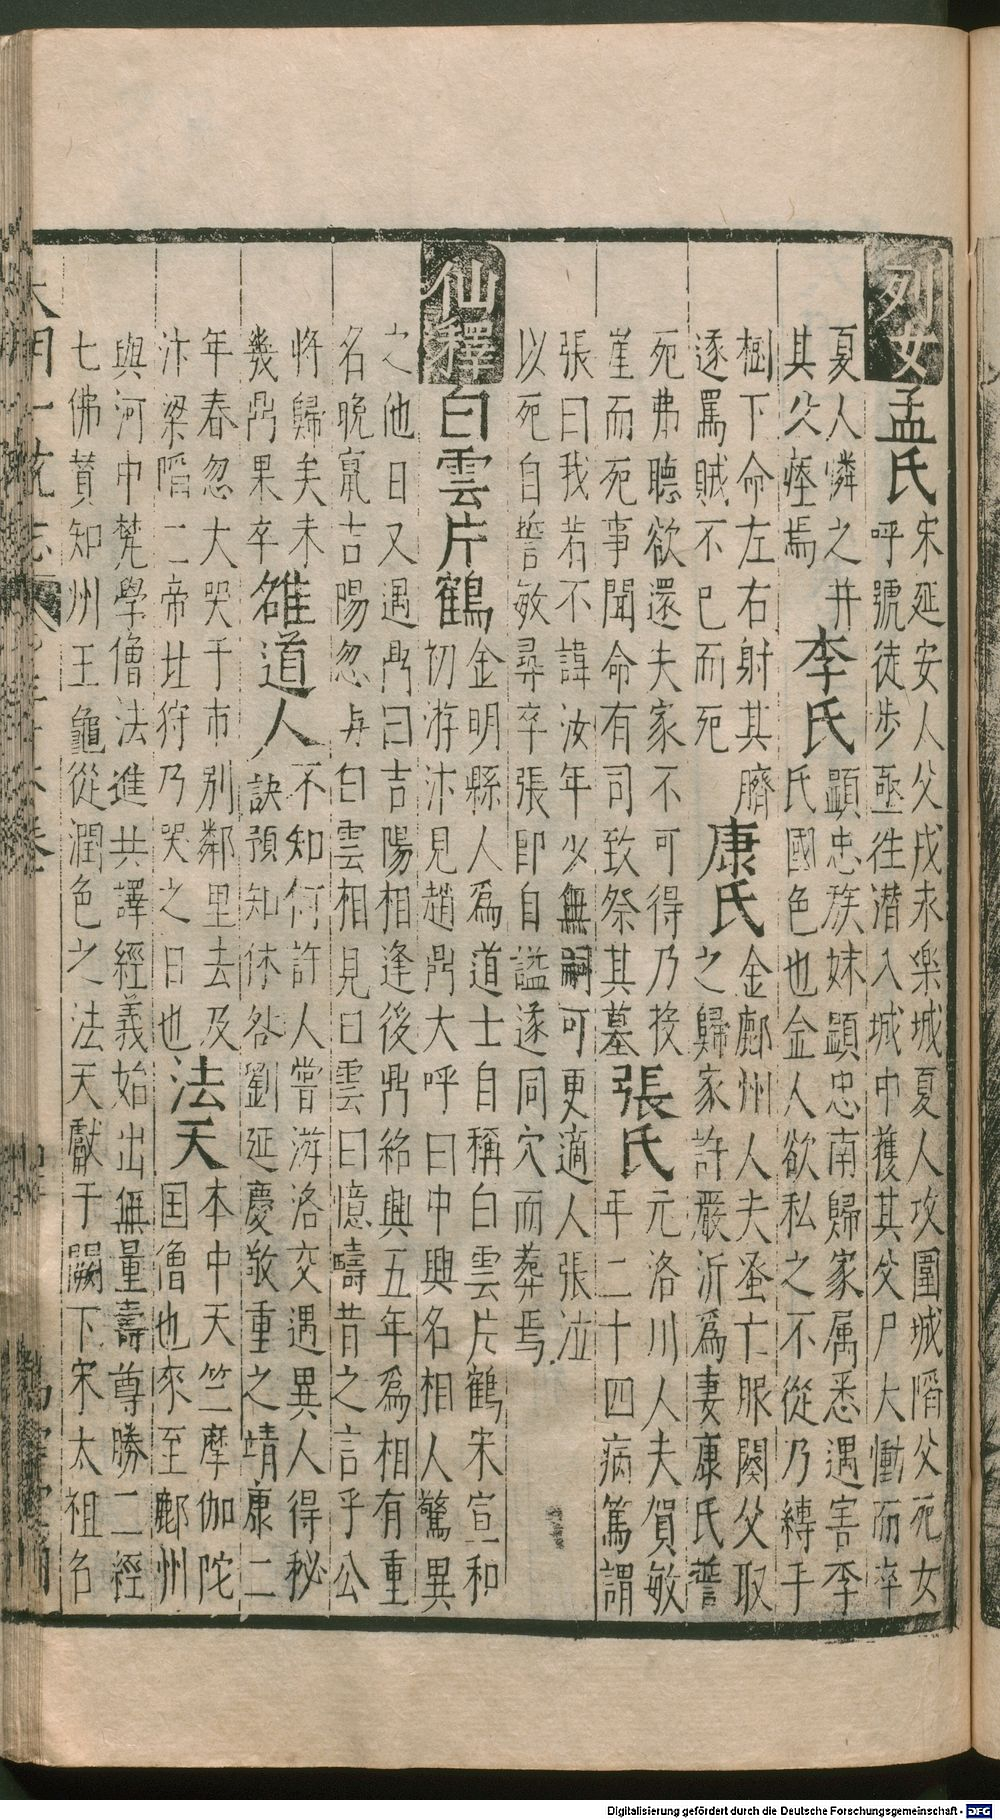 列女
孟氏
宋延安人父戍永樂城夏人攻圍城陷父死女
呼號徒步亟往潜入城中獲其父尸大慟而卒
夏人憐之并
其父瘞焉
李氏
顯忠族妹顯忠南歸家属悉遇害李
氏國色也金人欲私之不從乃縛手
樹下命左右射其臍
遂罵賊不已而死
康氏
金鄜州人夫蚤亡服闋父取
之歸家許嚴沂爲妻康氏誓
死弗聽欲還夫家不可得乃投
崖而死事聞命有司致祭其墓
張氏
元洛川人夫賀敏
年二十四病篤謂
張曰我若不諱汝年少無嗣可更適人張泣
以死自誓敏尋卒張即自縊遂同穴而葬焉
仙釋
白雲片鶴
金明縣人爲道士自稱白雲片鶴宋宣和
初游汴見趙鼎大呼曰中興名相人驚異
之他日又遇鼎曰吉陽相逢後鼎紹興五年爲相有重
名晚竄吉陽忽与白雲相見曰雲曰憶疇昔之言乎公
将歸矣未
幾鼎果卒
雒道人
不知何許人嘗游洛交遇異人得秘
訣預知休咎劉延慶敬重之靖康二
年春忽大哭于市別鄰里去及
汴梁陷二帝北狩乃哭之日也
法天
本中天竺摩伽陀
国僧也來至鄜州
與河中梵學僧法進共譯經義始出無量壽尊勝二經
七佛賛知州王龜從潤色之法天獻于闕下宋太祖名
大明一統志
Digitalisierung gefördert durch die Deutsche Forschungsgemeinschaft - DFG